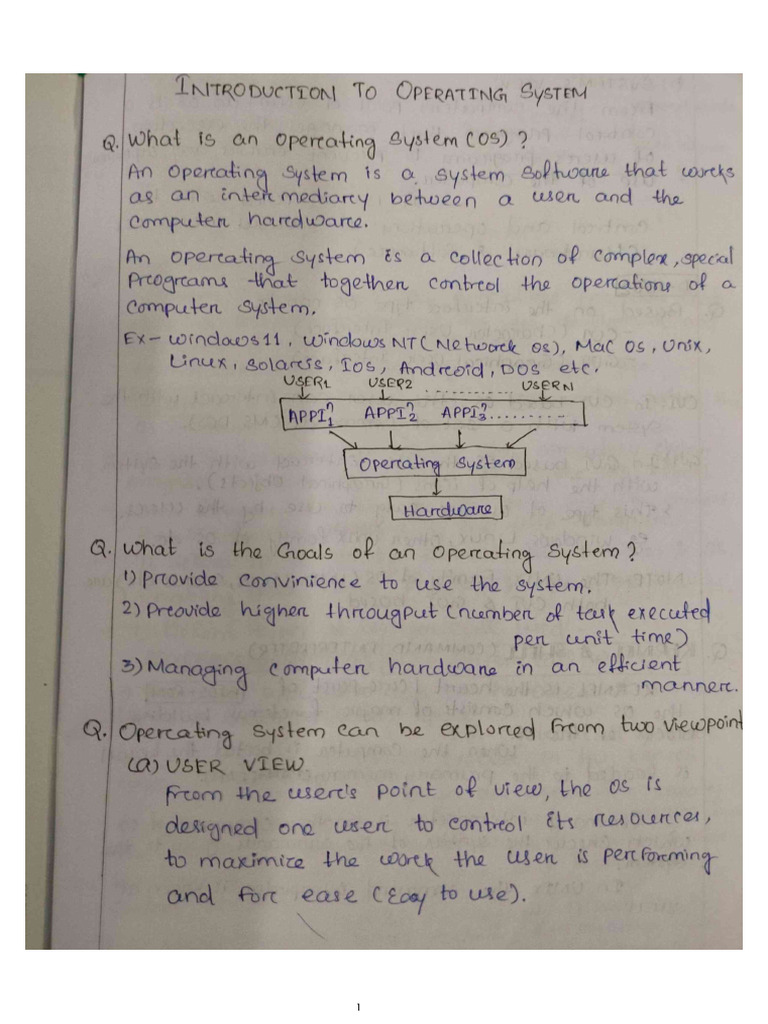 INTRODUCTION TO OPERATING SYSTEM
Q. What is an Operating System (OS) ?
An Operating System is a System Software that works
as an intermediary between a user and the
computer hardware.
An operating system is a collection of complex, special
Programs that together control the operations of a
computer system.
Ex- Windows 11, Windows NT (Network OS), Mac OS, Unix,
Linux, Solaris, IOS, Android, DOS etc.
USER1 USER2 .............. USERN
APPIⁿ1 APPIⁿ2 APPIⁿ3..........
Operating System
Hardware
Q. What is the Goals of an Operating System?
1) Provide convinience to use the system.
2) Provide higher througput (number of task executed
per unit time)
3) Managing computer hardware in an efficient
manner.
Q. Operating System can be explored from two viewpoint
(a) USER VIEW
From the user's point of view, the OS is
designed one user to control its resources,
to maximize the work the user is performing
and for ease (Easy to use).
1